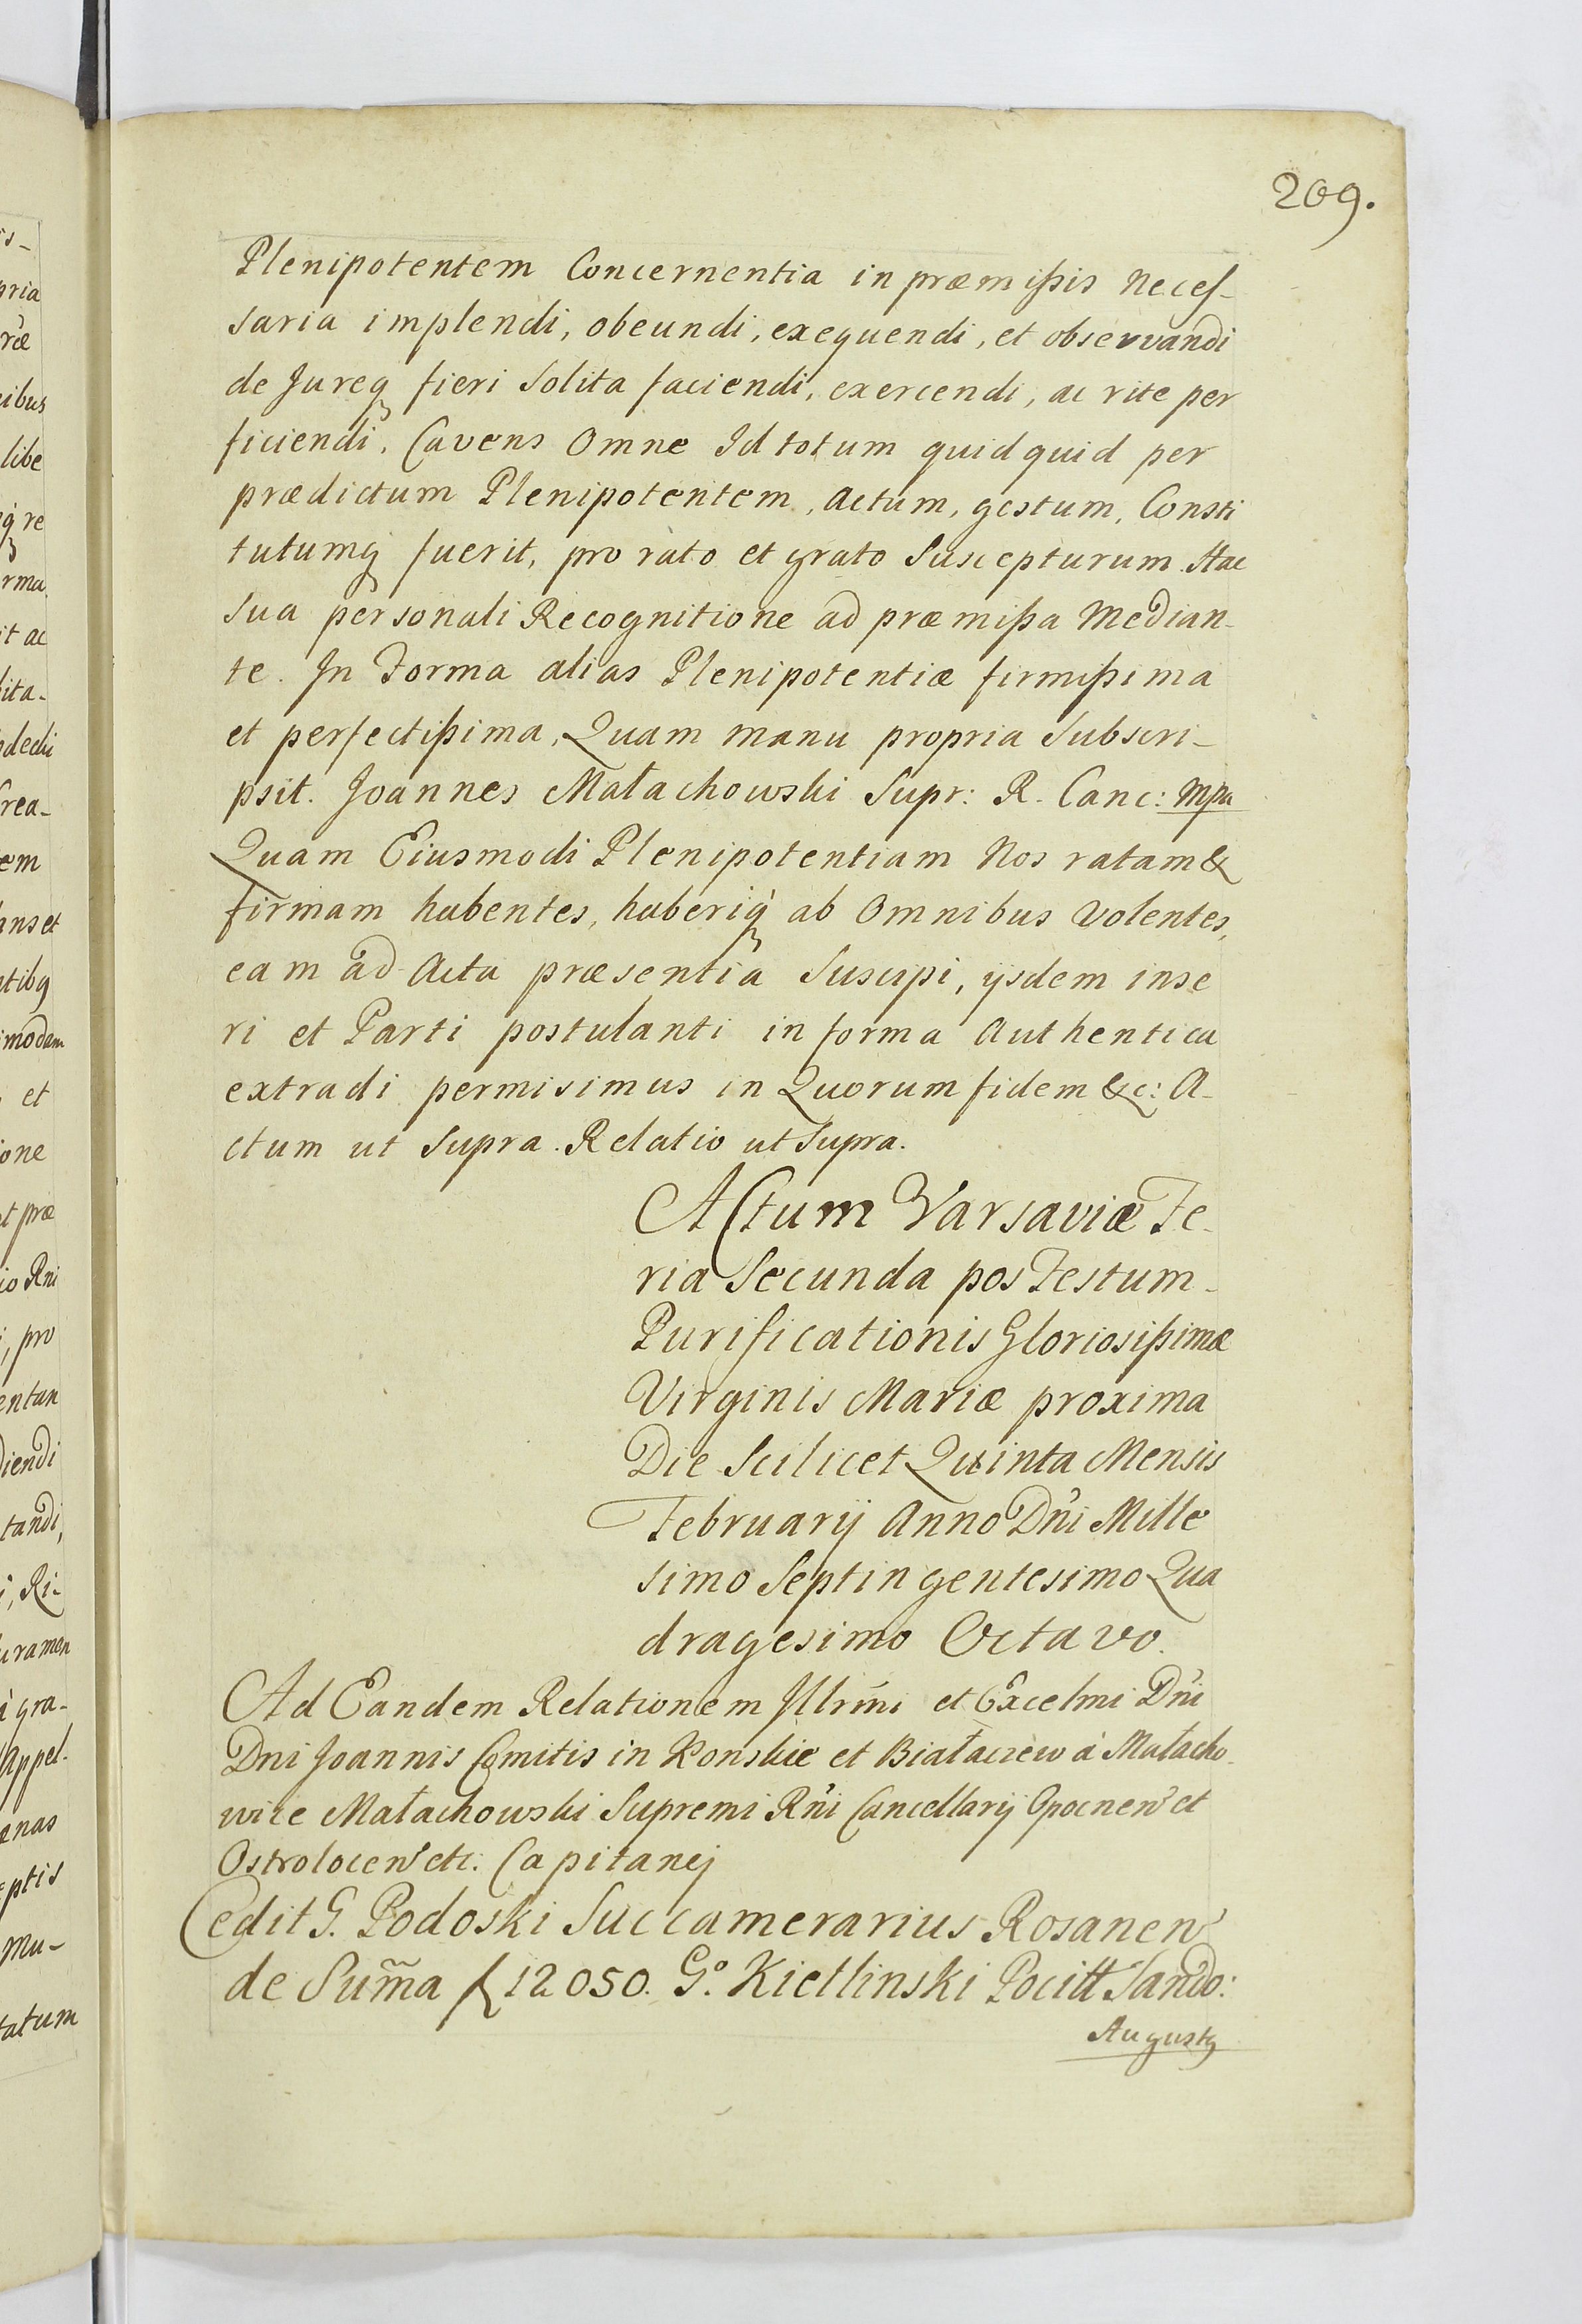 209.
Plenipotentem Concernentia in præmißis neces-
saria implendi, obeundi, exequendi, et observandi
de Jureq fieri Solita faciendi, exercendi, ac rite per
ficiendi. Cavens Omne Id totum quidquid per
prædictum Plenipotentem, Actum, gestum, Consti
tutumq fuerit, pro rato et grato Suscepturum. Hac
Sua personali Recognitione ad præmißa Median-
te. In Forma alias Plenipotentiæ firmißima
et perfectißima, Quam manu propria Subscri-
psit. Joannes Małachowski Supr: R. Canc: mpa
Quam Eiusmodi Plenipotentiam Nos ratam &
firmam habentes, haberiq ab Omnibus Volentes,
eam ad Acta præsentia Suscipi, ijsdem inse
ri et Parti postulanti in forma Authentica
extradi permisimus in Quorum fidem &c: A-
ctum ut Supra. Relatio ut Supra.
ACtum Varsaviæ Fe-
ria Secunda pos Festum
Purificationis Gloriosißimæ
Virginis Mariæ proxima
Die Scilicet Quinta Mensis
Februarij Anno Dni Mille
simo Septingentesimo Qua
dragesimo Octavo.
Ad Eandem Relationem Illrmi et Excelmi Dni
Dni Joannis Comitis in Konskie et Białaczew à Małacho-
wice Małachowski Supremi Rni Cancellarij Opocnen et
Ostrolocen etc. Capitanej
Cedit G. Podoski Succamerarius Rosanen
de Sum̃a f 12050. Go. Kietlinski Pocitt Sando:
Augustq